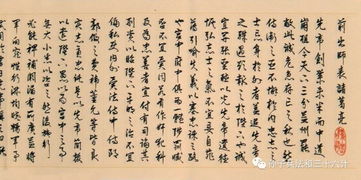 前出師表 諸葛亮
先帝創業未半而中道
崩殂今天下三分益州疲
敝此誠危急存亡之秋也然
侍衛之臣不懈於內忠志之
士忘身於外者蓋追先帝
之殊遇欲報之於陛下也誠
宜開張聖聽以光先帝遺
德恢弘志士之氣不宜妄自菲
薄引喻失義以塞忠諫之路
也宮中府中俱為一體陟罰臧
否不宜異同若有作奸犯科
及為忠善者宜付有司論其
刑賞以昭陛下平明之治不宜
偏私使內外異法也侍中侍郎
郭攸之費禕董允等此皆良
實志慮忠純是以先帝簡拔
以遺陛下愚以為宮中之事
無大小悉以咨之然後施行
必能裨補闕漏有所廣益將
軍向寵性行淑均曉暢軍
孙子兵法和三十六计